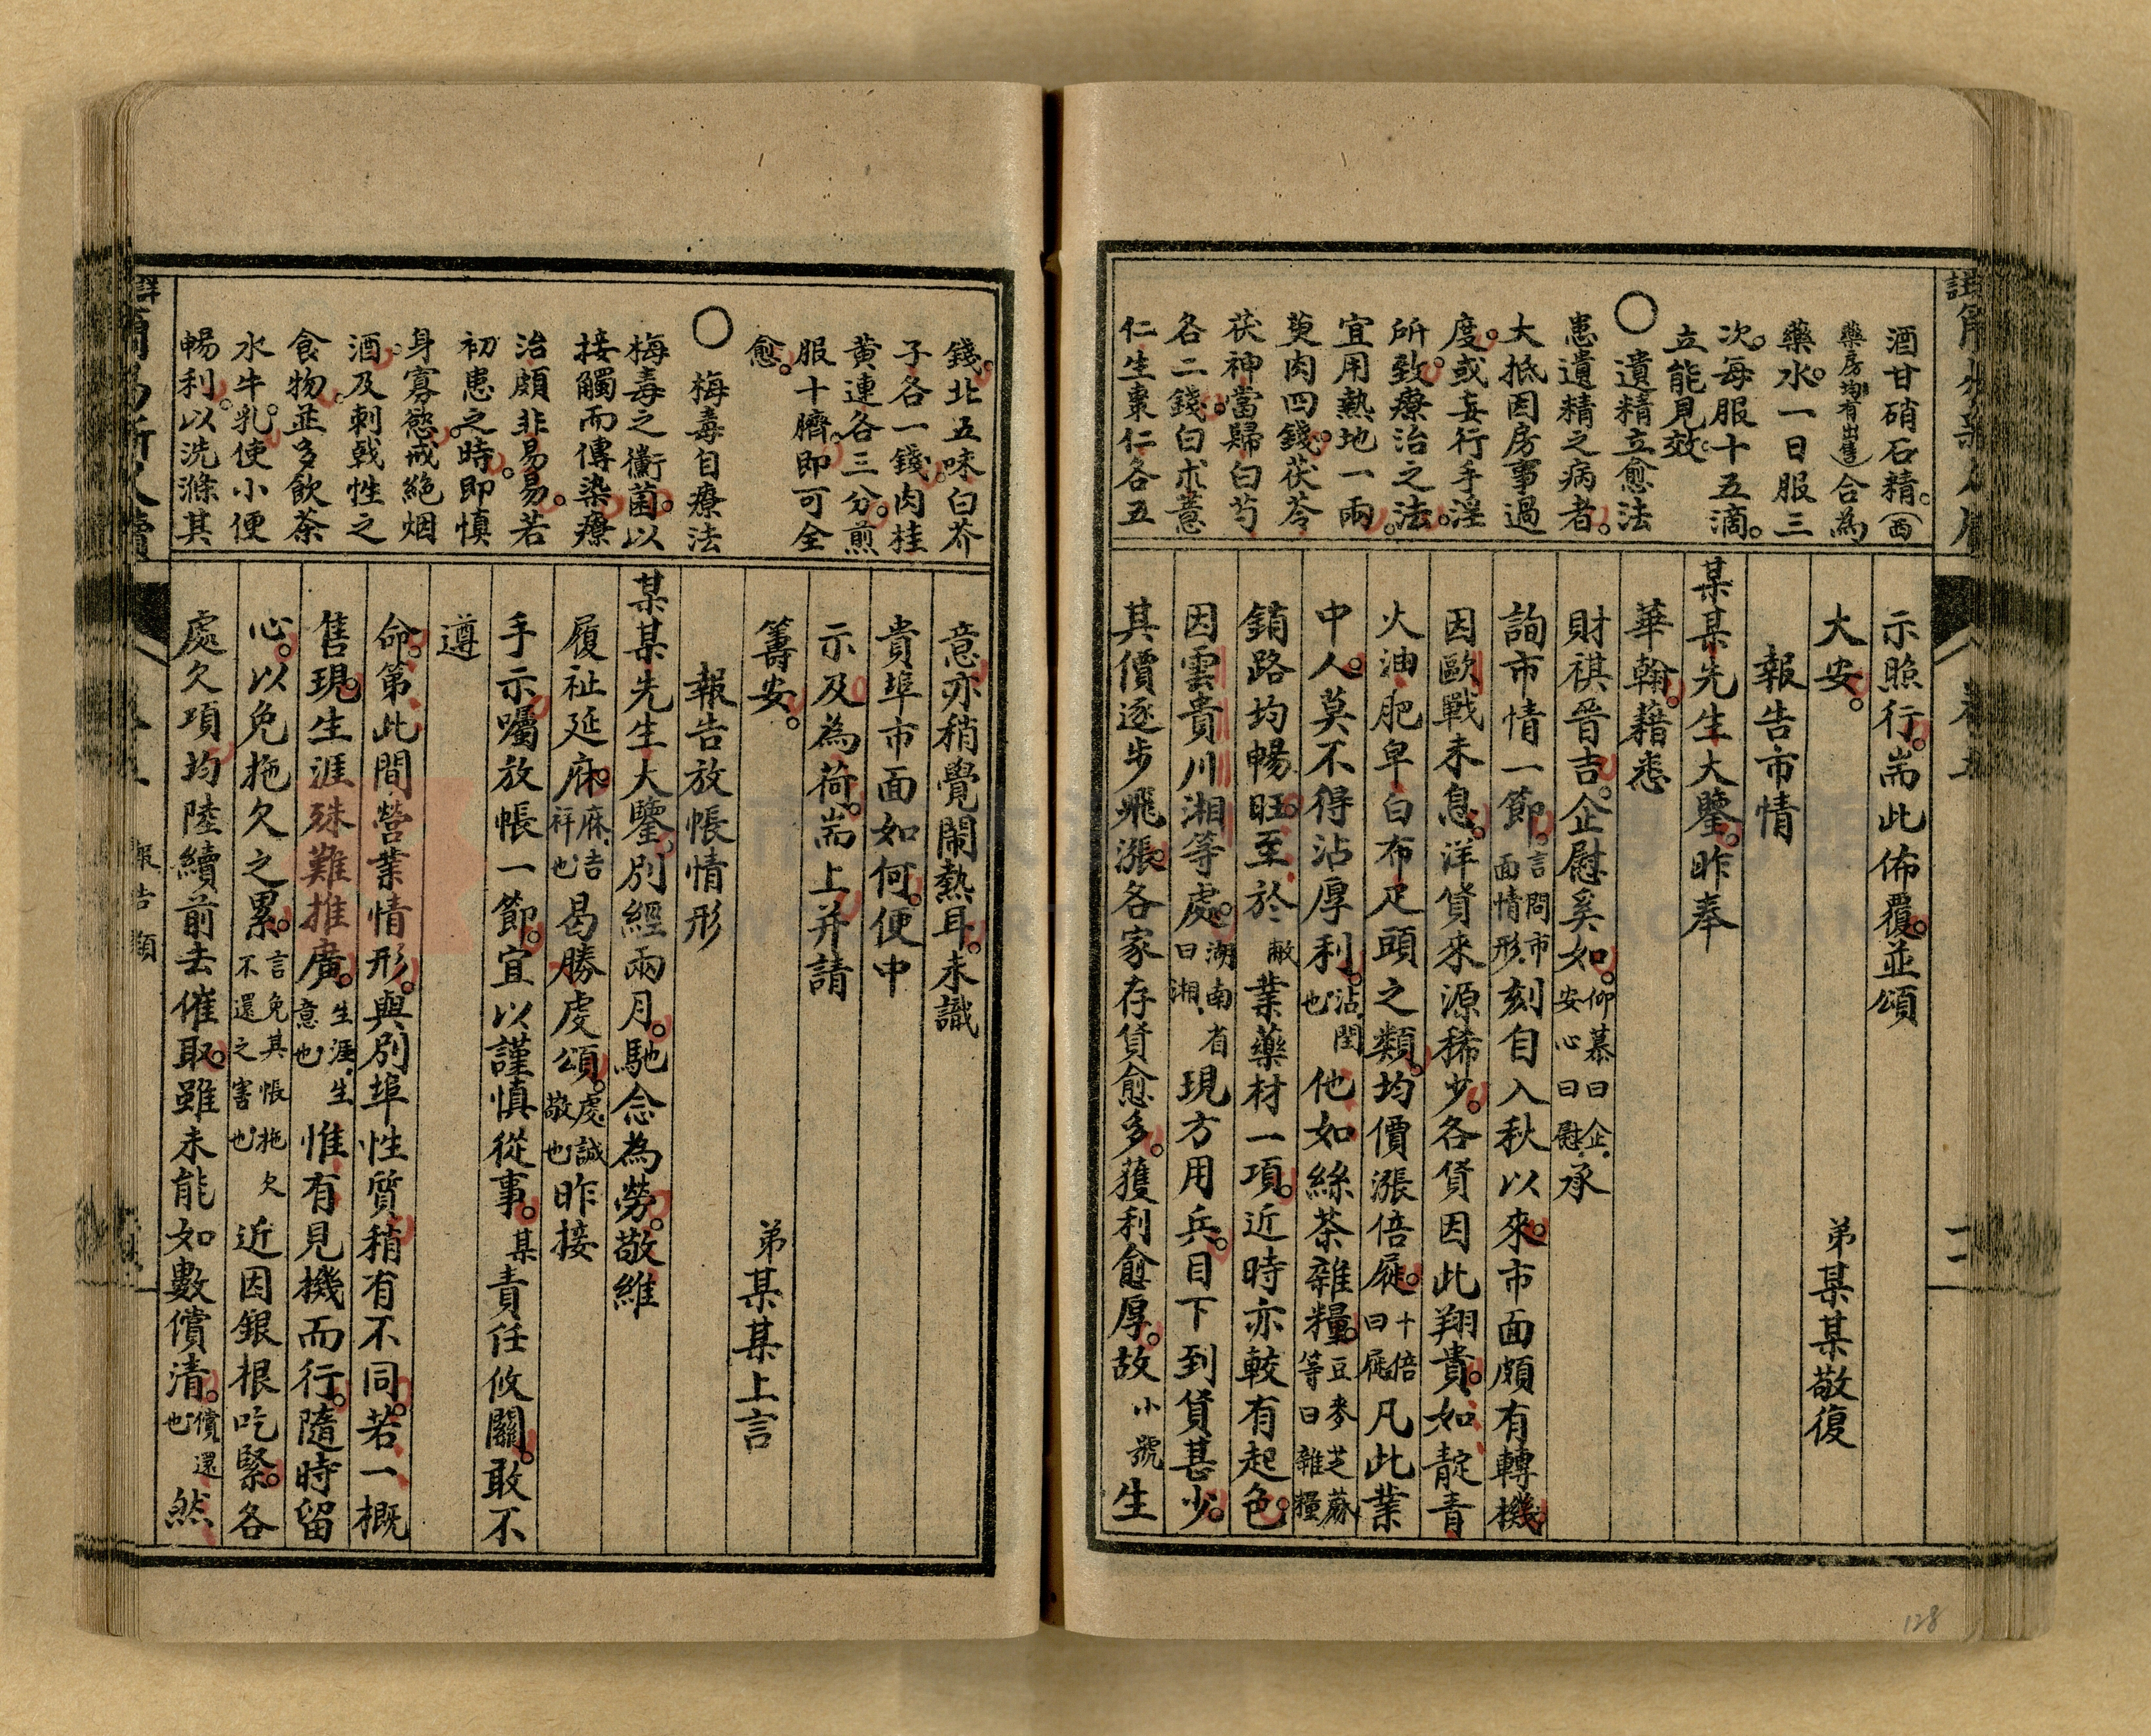 酒甘硝石精。（西
藥房均有出售）合為
藥水。一日服三
次。每服十五滴。
立能見效。
〇遺精立愈法
患遺精之病者。
大抵因房事過
度。或妄行手淫
所致。療治之法。
宜用熱地一兩。
萸肉四錢。茯苓
茯神當歸白芍
各二錢。白朮薏
仁生棗仁各五
示照行。耑此佈覆。並頌
大安。
弟某某敬復
報告市情
某某先生大鑒。昨奉
華翰。藉悉
財祺晉吉。企慰奚如。仰慕曰企、安心曰慰、承
詢市情一節。言問市面情形刻自入秋以來。市面頗有轉機。
因歐戰未息。洋貨來源稀少。各貨因此翔貴。如靛青
火油肥皁白布疋頭之類。均價漲倍蓰。十倍曰蓰凡此業
中人。莫不得沾厚利。沾、閏也他如絲茶雜糧。豆麥芝蔴等曰雜糧
銷路均暢旺。至於敝業藥材一項。近時亦較有起色。
因雲貴川湘等處。湖南省曰湘、現方用兵。目下到貨甚少。
其價逐步飛漲。各家存貨愈多。獲利愈厚。故小號生
錢。北五味白芥
子各一錢。肉桂
黃連各三分。煎
服十臍。即可全
愈。
〇梅毒自療法
梅毒之黴菌。以
接觸而傳染。療
治頗非易易。若
初患之時。即慎
身寡慾。戒絕烟
酒。及刺戟性之
食物。並多飲茶
水牛乳。使小便
暢利。以洗滌其
意亦稍覺鬧熱耳。未識
貴埠市面如何。便中
示及為荷。耑上并請
籌安。
弟某某上言
報告放帳情形
某某先生大鑒。別經兩月。馳念為勞。敬維
履祉延庥。庥、吉祥也曷勝虔頌。虔誠敬也昨接
手示囑放帳一節。宜以謹慎從事。某責任攸關。敢不
遵
命。第此間營業情形。與別埠性質稍有不同。若一概
售現。生涯殊難推廣。生涯、生意也惟有見機而行。隨時留
心。以免拖欠之累。言免其帳拖欠不還之害也近因銀根吃緊。各
處欠項均陸續前去催取。雖未能如數償清。償還也然
報告類
128